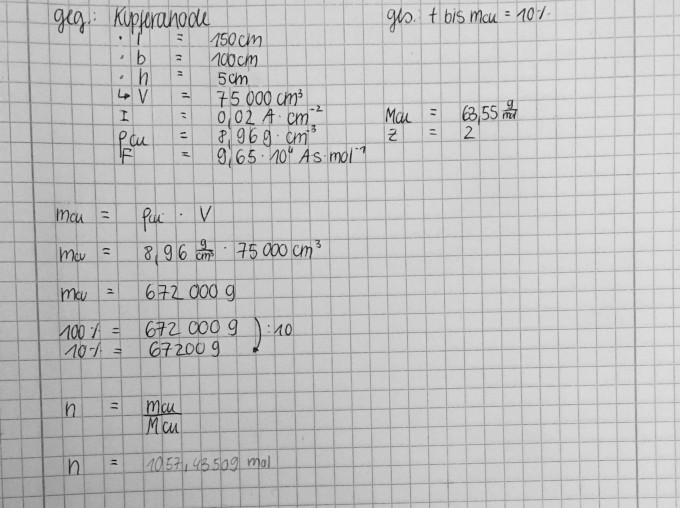 geg.: Kupferanode ges. t bis mcu = 10%
· l = 150cm
· b = 100cm
· h = 5cm
↳ V = 75 000 cm³
I = 0,02 A · cm⁻² Mcu = 63,55 g/mol
ρcu = 8,96 g · cm⁻³ z = 2
F = 9,65 · 10⁴ As · mol⁻¹
mcu = ρcu · V
mcu = 8,96 g/cm³ · 75 000 cm³
mcu = 672 000 g
100% = 672 000 g ) :10
10% = 67200 g
n = mcu/Mcu
n = 1057,43509 mol